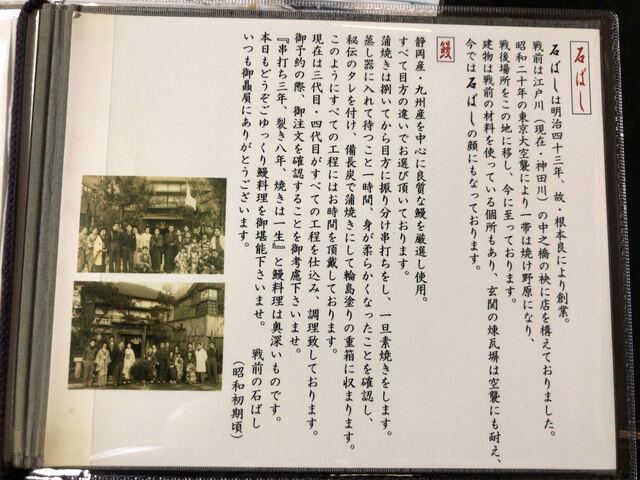 石ばし
石ばしは明治四十三年、故、根本良により創業。
戦前は江戸川（現在・神田川）の中之橋の袂に店を構えておりました。
昭和二十年の東京大空襲により一帯は焼け野原になり、
戦後場所をこの地に移し、今に至っております。
建物は戦前の材料を使っている個所もあり、玄関の煉瓦塀は空襲にも耐え、
今では石ばしの顔にもなっております。
鰻
静岡産・九州産を中心に良質な鰻を厳選し使用。
すべて目方の違いでお選び頂いております。
蒲焼きは捌いてから目方に振り分け串打ちをし、一旦素焼きをします。
蒸し器に入れて待つこと一時間、身が柔らかくなったことを確認し、
秘伝のタレを付け、備長炭で蒲焼きにして輪島塗りの重箱に収まります。
このようにすべての工程にはお時間を頂戴しております。
現在は三代目・四代目がすべての工程を仕込み、調理致しております。
御予約の際、御注文を確認することを御考慮下さいませ。
『串打ち三年、裂き八年、焼きは一生』と鰻料理は奥深いものです。
本日もどうぞごゆっくり鰻料理を御堪能下さいませ。
いつも御贔屓にありがとうございます。
戦前の石ばし
（昭和初期頃）